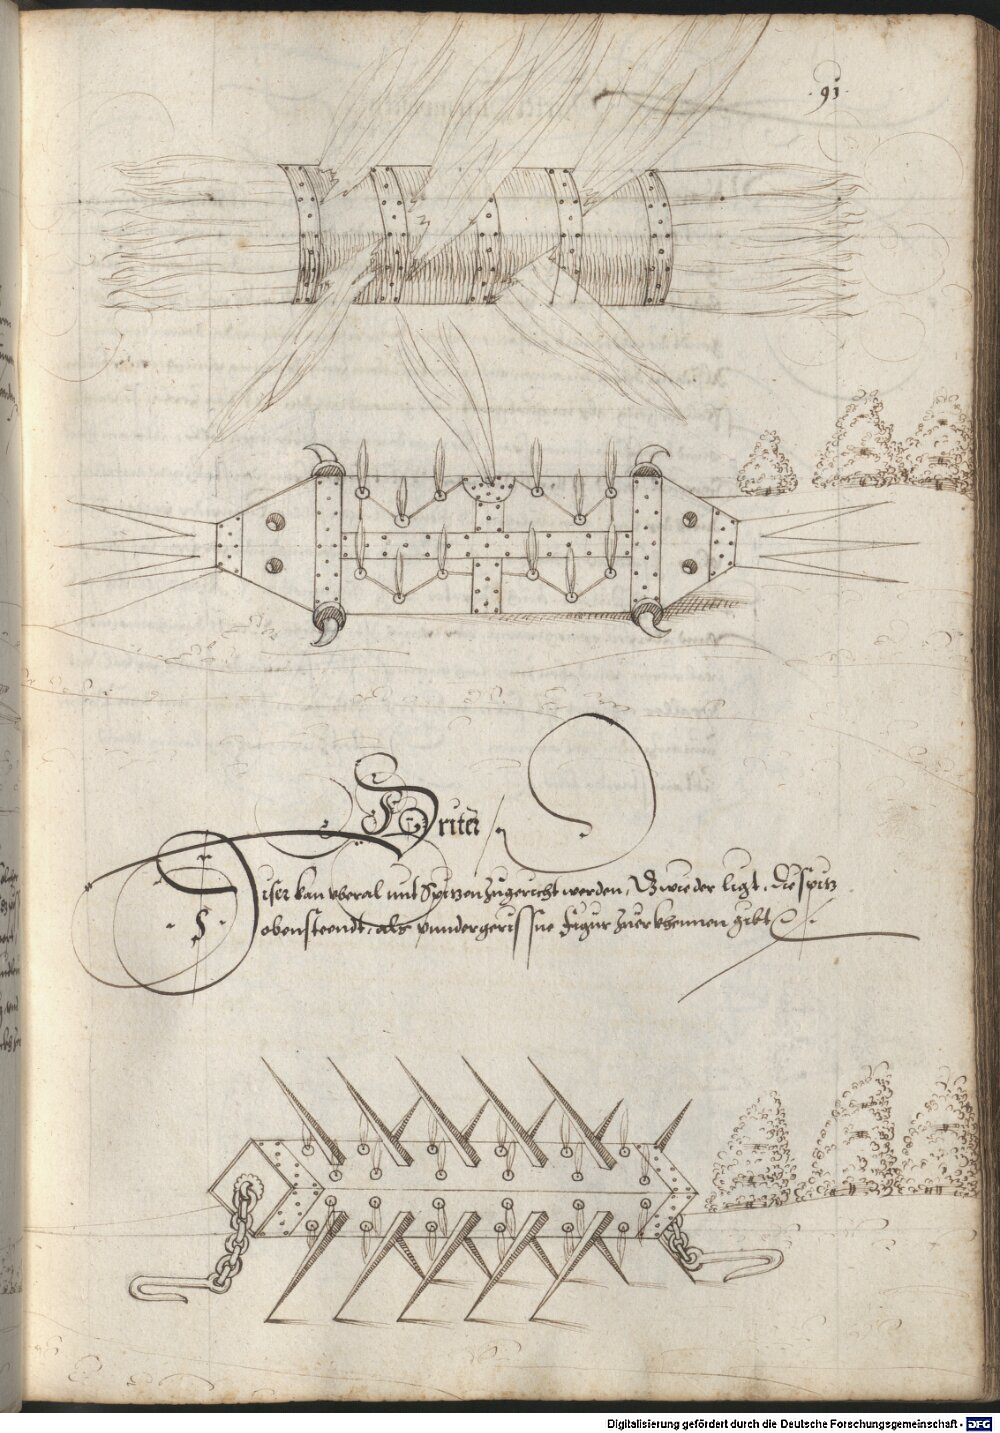 ·91·
Driter
Diser kan vberal mit Spitzen zugericht werden, Dz wie der ligt, die spitz
obensteendt, als vnndergerissne figur zuerkhennen gibt
Digitalisierung gefördert durch die Deutsche Forschungsgemeinschaft - DFG